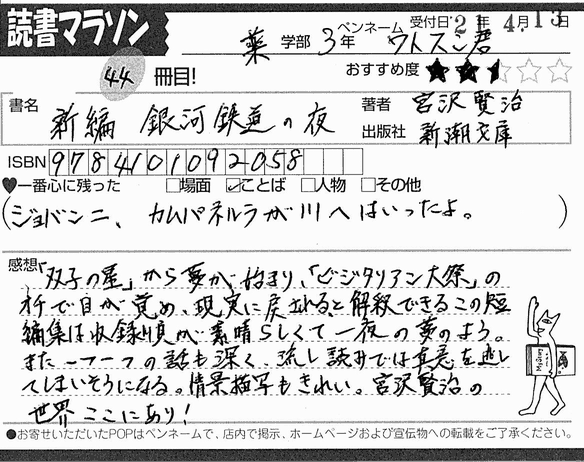 読書マラソン
ペンネーム 受付日'21年 4月13日
薬 学部 3年 ワトスン君
44 冊目! おすすめ度 ★★★☆☆☆
書名 新編 銀河鉄道の夜
著者 宮沢賢治
出版社 新潮文庫
ISBN 9784101092058
♥一番心に残った □場面 ☑ことば □人物 □その他
(ジョバンニ、カムパネルラが川へはいったよ。)
感想「双子の星」から夢が始まり、「ビジタリアン大祭」の
オチで目が覚め、現実に戻されると解釈できるこの短
編集は収録順が素晴らしくて一夜の夢のよう。
また一つ一つの話も深く、流し読みでは真意を逃し
てしまいそうになる。情景描写もきれい。宮沢賢治の
世界ここにあり!
●お寄せいただいたPOPはペンネームで、店内で掲示、ホームページおよび宣伝物への転載をご了承ください。